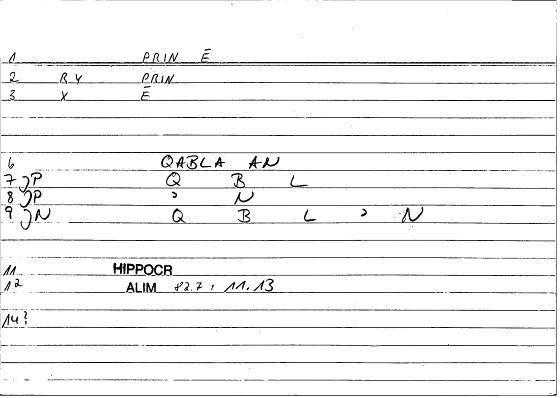 1 PRIN Ē
2 RY PRIN
3 X Ē
6 QABLA AN
7 )P Q B L
8 )P ' N
9 )N Q B L ' N
11 HIPPOCR
12 ALIM 82.7 ; 11.13
14?